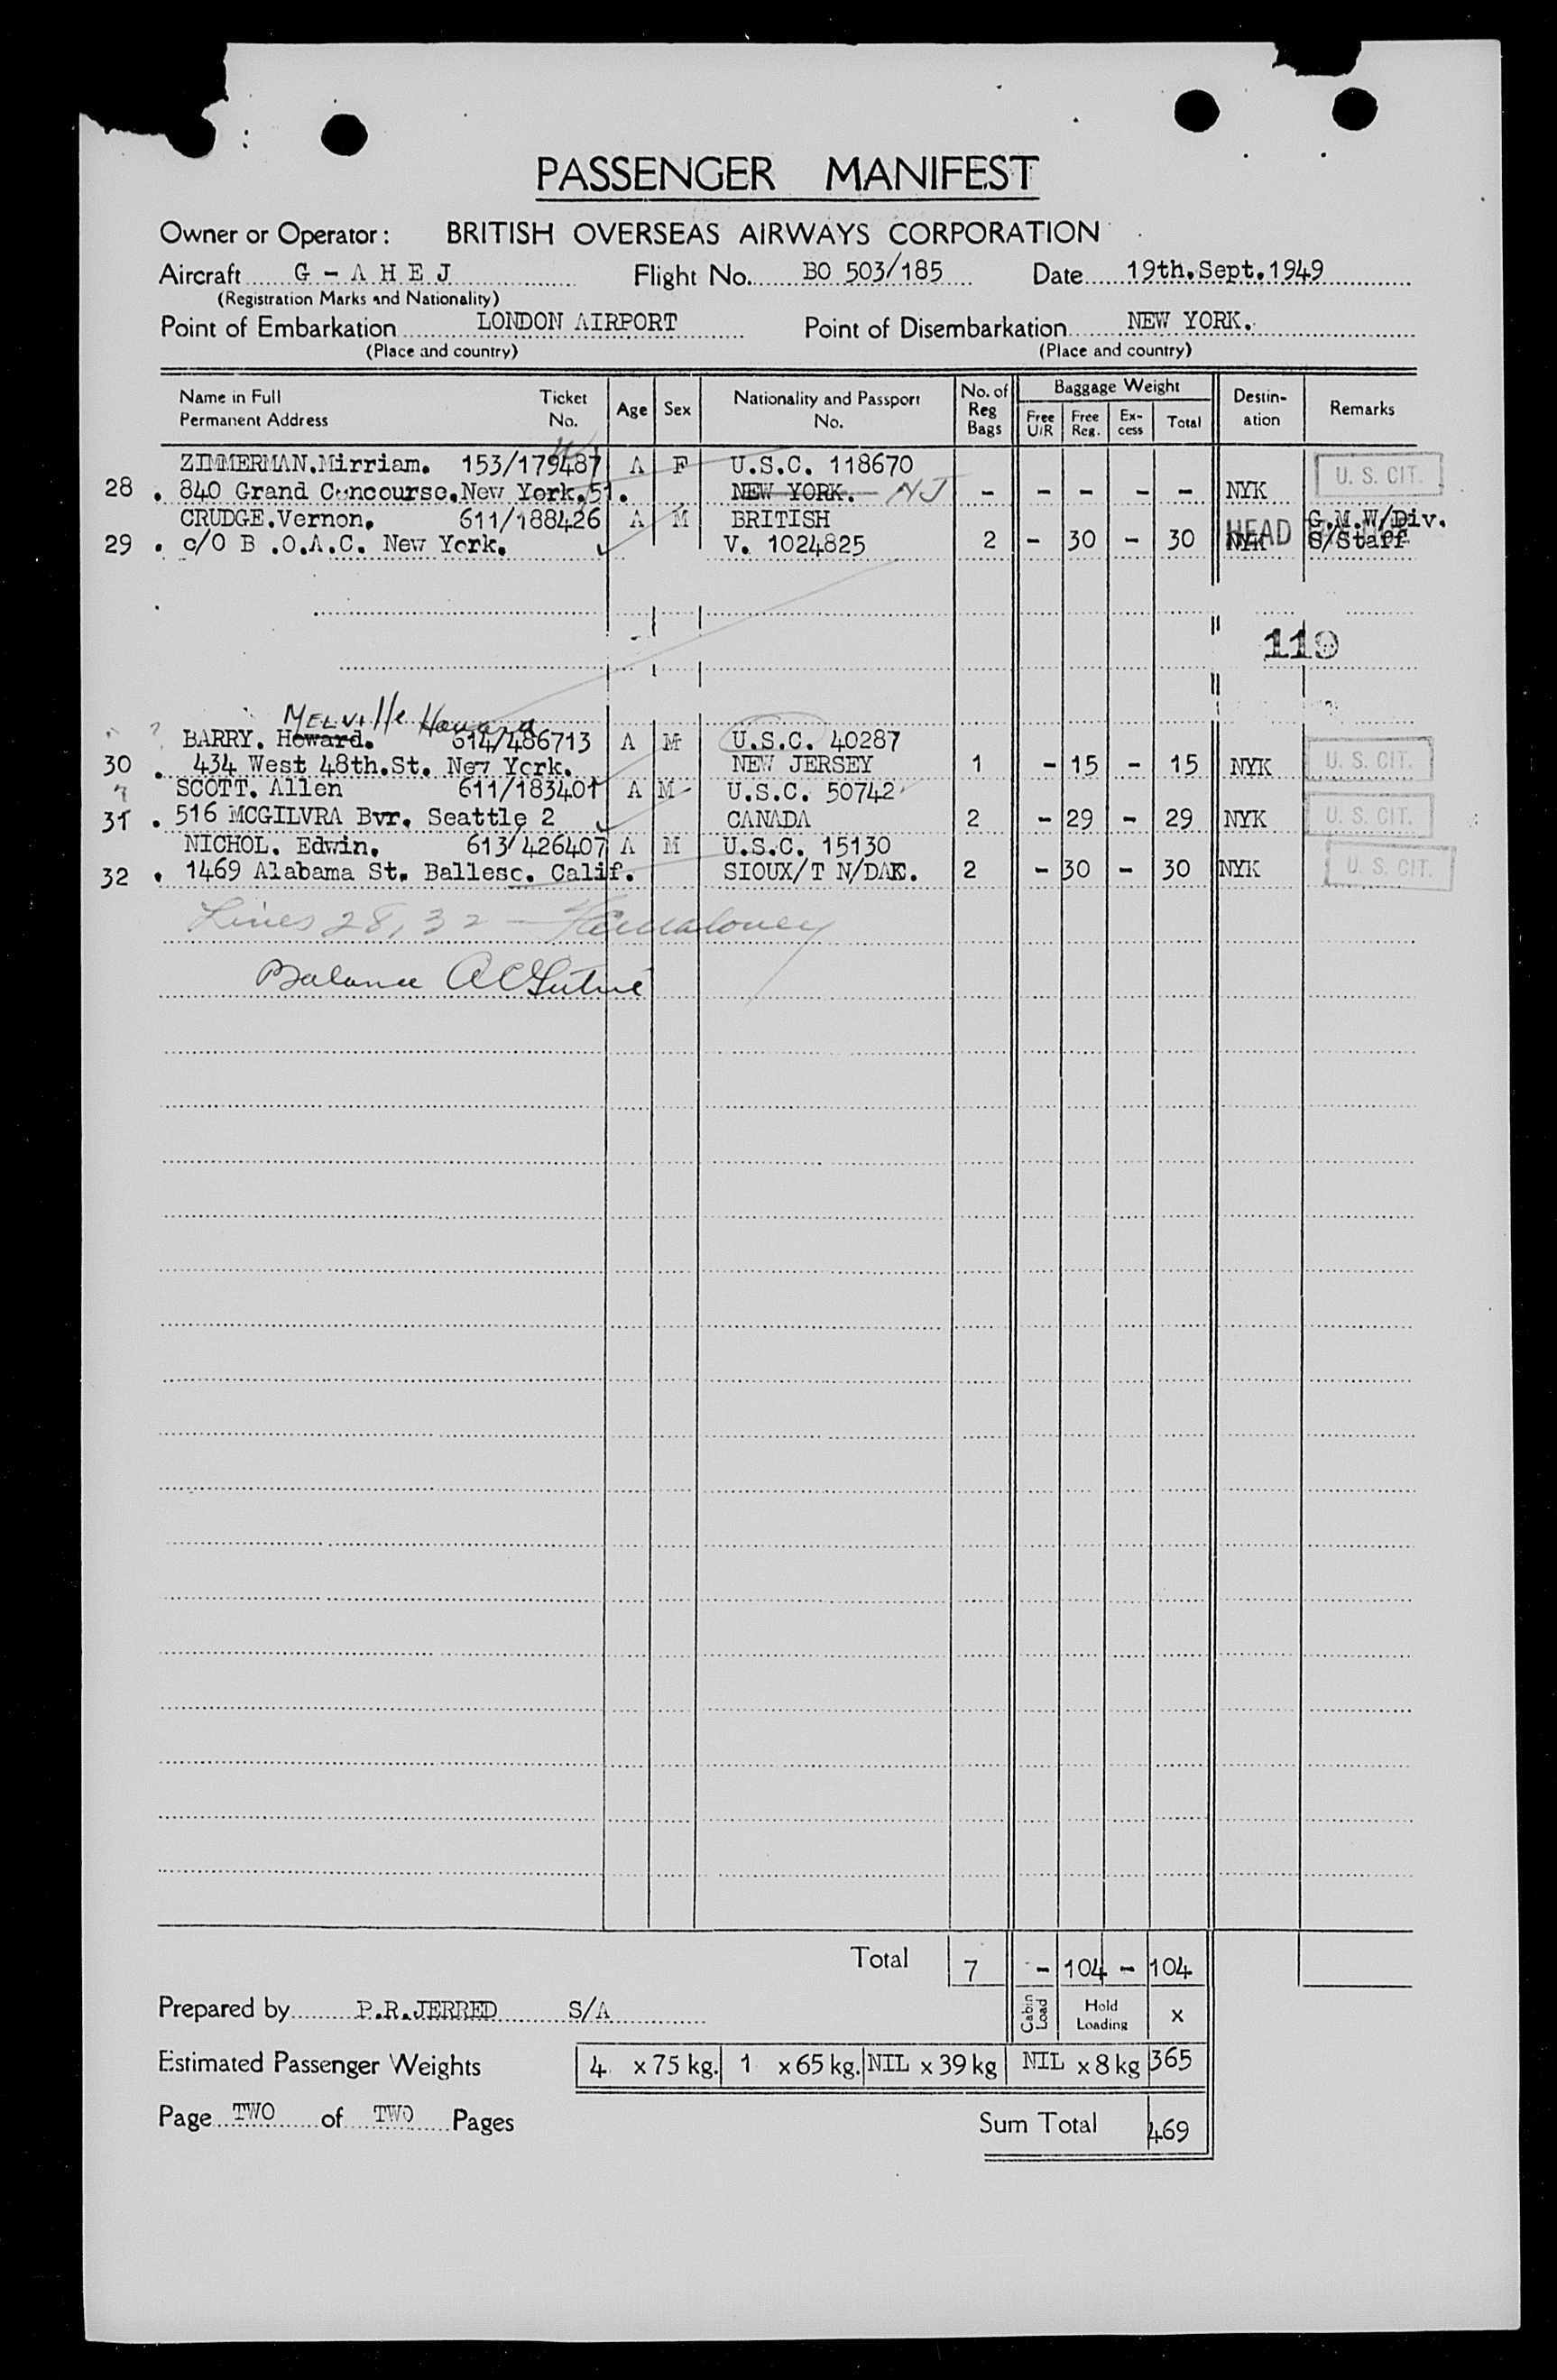 PASSENGER MANIFEST
Owner or Operator: BRITISH OVERSEAS AIRWAYS CORPORATION
Aircraft G - A H E J Flight No. BO 503/185 Date 19th.Sept.1949
(Registration Marks and Nationality)
Point of Embarkation LONDON AIRPORT Point of Disembarkation NEW YORK.
(Place and country) (Place and country)
Name in Full Permanent Address Ticket No. Age Sex Nationality and Passport No. No. of Reg Bags Baggage Weight Free U/R Free Reg. Ex-cess Total Destin-ation Remarks
ZIMMERMAN.Mirriam. 153/179487 A F U.S.C. 118670 U. S. CIT.
28 . 840 Grand Concourse.New York.51. NEW YORK. NJ - - - - - NYK
CRUDGE.Vernon. 611/188426 A M BRITISH G.M.W/Div.
29 . c/O B .O.A.C. New York. V. 1024825 2 - 30 - 30 NYK HEAD S/Staff
119
MELVIlle Howard
BARRY. Howard. 614/486713 A M U.S.C. 40287
30 . 434 West 48th.St. New York. NEW JERSEY 1 - 15 - 15 NYK U. S. CIT.
SCOTT. Allen 611/183401 A M U.S.C. 50742
31 . 516 MCGILVRA Bvr. Seattle 2 CANADA 2 - 29 - 29 NYK U. S. CIT.
NICHOL. Edwin. 613/426407 A M U.S.C. 15130
32 . 1469 Alabama St. Ballesc. Calif. SIOUX/T N/DAK. 2 - 30 - 30 NYK U. S. CIT.
Lines 28, 32 -
Balance
Total 7 - 104 - 104
Prepared by P.R.JERRED S/A Cabin Load Hold Loading x
Estimated Passenger Weights 4 x 75 kg. 1 x 65 kg. NIL x 39 kg NIL x 8 kg 365
Page TWO of TWO Pages Sum Total 469